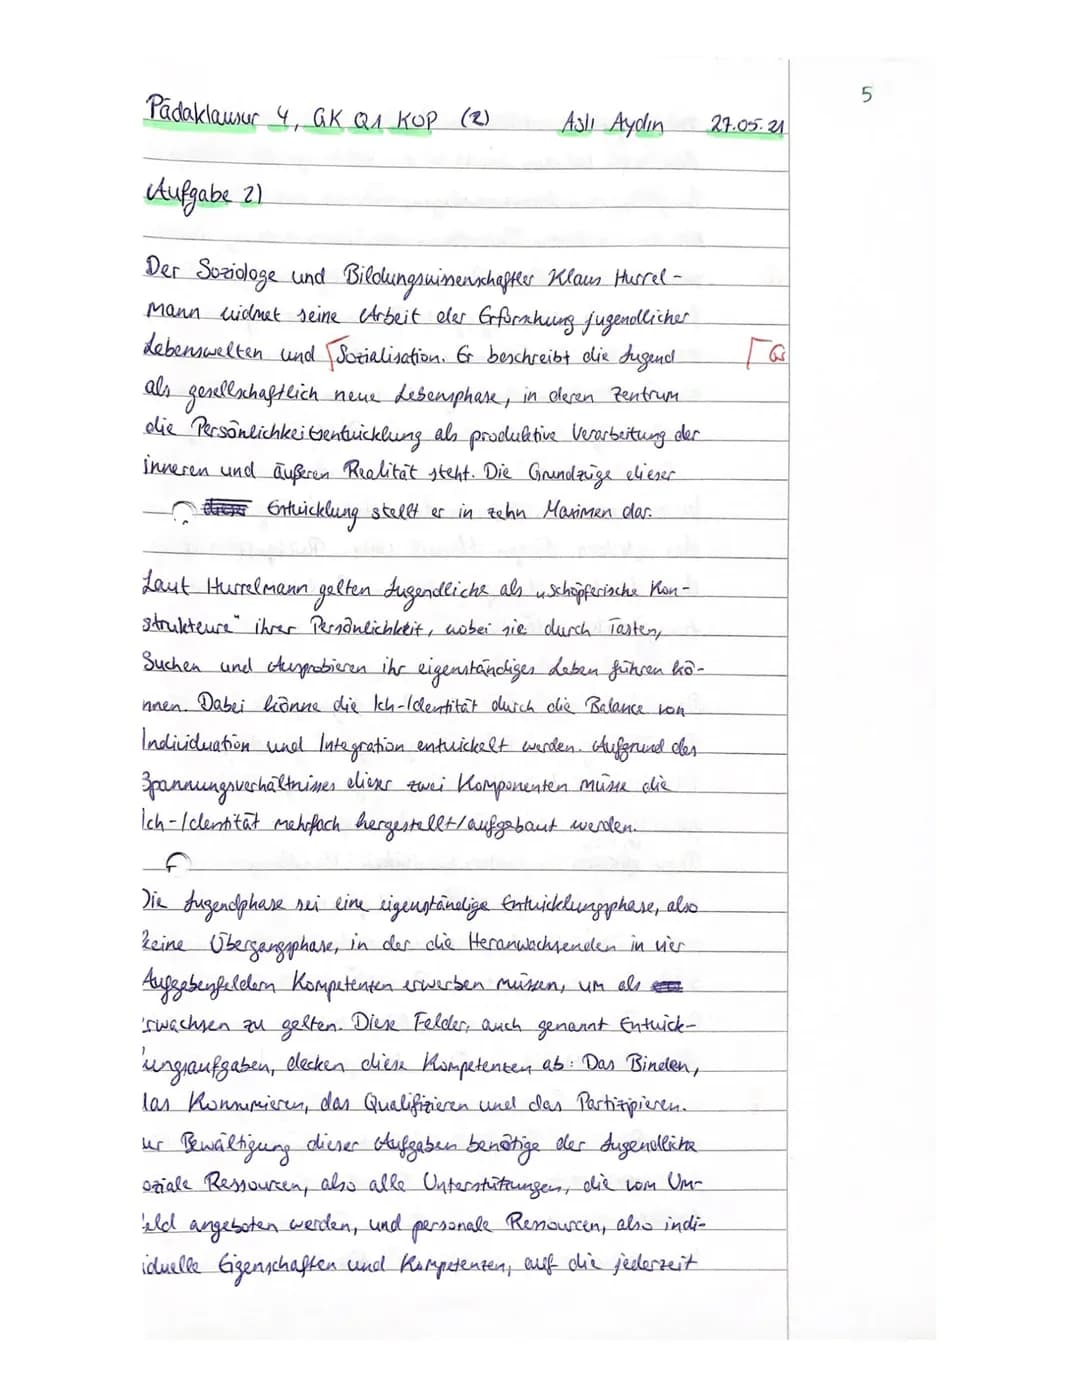 5
Pädaklausur 4, GK Q1 KUP (2) Aslı Aydın 27.05.21
Aufgabe 2)
Der Soziologe und Bildungswissenschaftler Klaus Hurrel-
mann widmet seine Arbeit der Erforschung jugendlicher
Lebenswelten und Sozialisation. Er beschreibt die Jugend
als gesellschaftlich neue Lebensphase, in deren Zentrum
die Persönlichkeitsentwicklung als produktive Verarbeitung der
inneren und äußeren Realität steht. Die Grundzüge dieser
Entwicklung stellt er in zehn Maximen dar.
Laut Hurrelmann gelten Jugendliche als „schöpferische Kon-
strukteure" ihrer Persönlichkeit, wobei sie durch Tasten,
Suchen und Ausprobieren ihr eigenständiges Leben führen kö-
nnen. Dabei könne die Ich-Identität durch die Balance von
Individuation und Integration entwickelt werden. Aufgrund des
Spannungsverhältnisses dieser zwei Komponenten müsse die
Ich-Identität mehrfach hergestellt/aufgebaut werden.
Die Jugendphase sei eine eigenständige Entwicklungsphase, also
keine Übergangsphase, in der die Heranwachsenden in vier
Aufgabenfeldern Kompetenzen erwerben müssen, um als
rwachsen zu gelten. Diese Felder, auch genannt Entwick-
lungsaufgaben, decken diese Kompetenzen ab: Das Binden,
das Konsumieren, das Qualifizieren und das Partizipieren.
ur Bewältigung dieser Aufgaben benötige der Jugendliche
oziale Ressourcen, also alle Unterstützungen, die vom Um-
eld angeboten werden, und personale Ressourcen, also indi-
iduelle Eigenschaften und Kompetenzen, auf die jederzeit